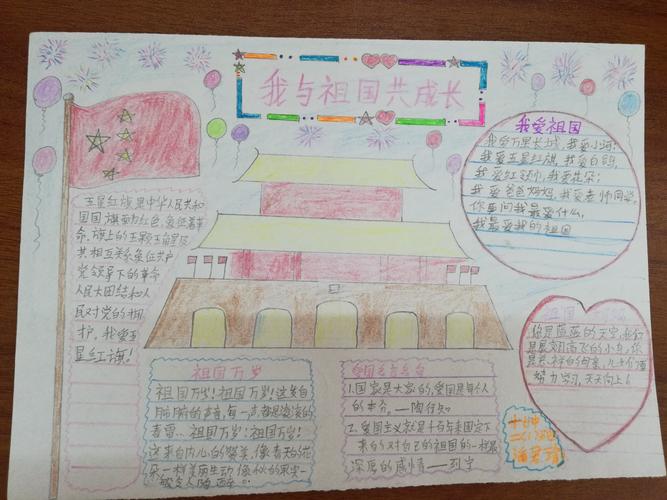 我与祖国共成长
五星红旗是中华人民共和
国国旗,旗面为红色,象征着革
命,旗上的五颗五角星及
其相互关系象征共产
党领导下的革命
人民大团结和人
民对党的拥
护,我爱五
星红旗!
我爱祖国
我爱万里长城,我爱小河;
我爱五星红旗,我爱白鸽,
我爱红领巾,我爱花朵;
我爱爸爸妈妈,我爱老师同学。
你要问我最爱什么,
我最爱我的祖国
祖国
你是蔚蓝的天空,我们
是展翅高飞的小鸟,你
是慈祥的母亲,儿女们
努力学习,天天向上!
祖国万岁
祖国万岁!祖国万岁!这发自
肺腑的声音,每一声都是滚滚的
春雷、祖国万岁!祖国万岁!
这来自内心的赞美,像春天的花
朵一样美丽生动,像秋的果实一
爱国名言名句
1.国家是大家的,爱国是每个人
的本分。——陶行知
2、爱国主义就是千百年来固定下
来的对自己的祖国的一种最
深厚的感情——列宁